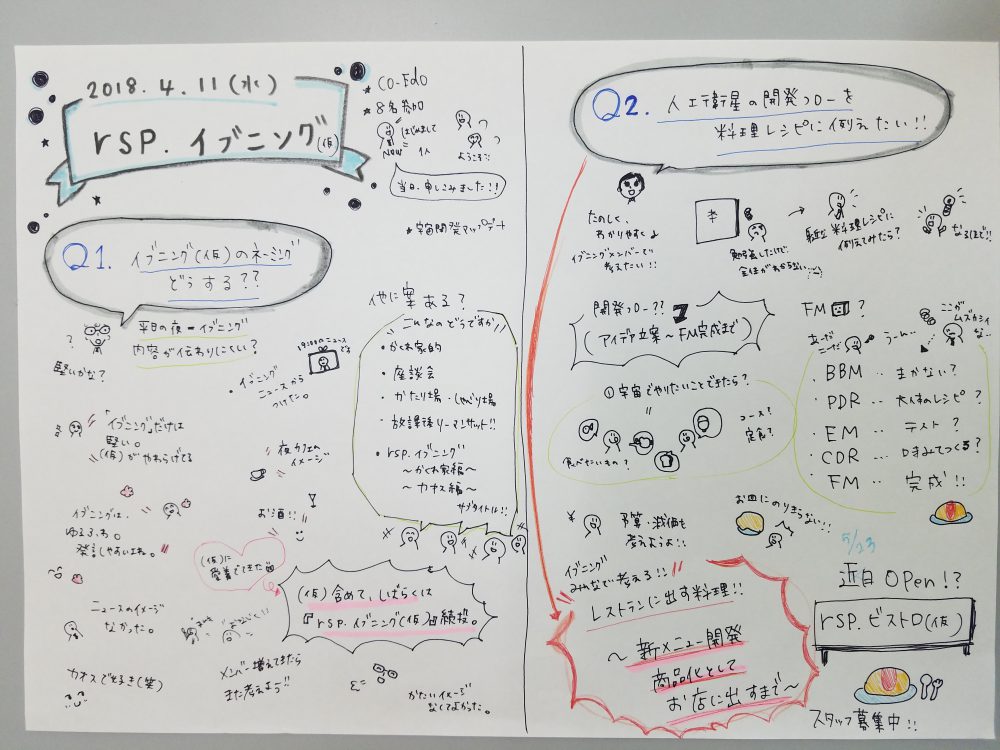 2018.4.11(水)
rsp.イブニング(仮)
★ CO-Edo
★ 8名参加
はじめまして
New 1人
ようこそ!!
当日、申しこみました!!
★宇宙開発アップデート
Q1. イブニング(仮)のネーミング
どうする??
平日の夜=イブニング
内容が伝わりにくい?
?
堅いかな?
19:00のニュース
です
・イブニング
ニュースから
つけた。
「イブニング」だけは
堅い。
(仮)がやわらげてる
夜カフェの
イメージ
イブニングは、
ゆるふわ。
発言しやすいよね。
お酒!!
(仮)に
愛着でてきた
ニュースのイメージ
なかった。
カオスで好き(笑)
メンバー増えてきたら
また考えよう!!
(仮)含めて、しばらくは
『rsp.イブニング(仮)』継続。
かたいイメージ
なくてよかった。
他に案ある?
こんなのどうですか!!
・かくれ家的
・座談会
・かたり場・しゃべり場
・放課後リーマンサット!!
・rsp.イブニング
～かくれ家編～
～カオス編～
サブタイトルは!!
Q2. 人工衛星の開発フローを
料理レシピに例えたい!!
たのしく、
わかりやすく
イブニングメンバーで
考えたい!!
本
勉強したけど、
全体がわからない
→
料理レシピに
例えてみたら?
なるほど!!
開発フロー??
(アイデア立案～FM完成まで)
FM ?
あーだ
こーだ
うーん…
ここが
ムズカシイ
な…
・BBM‥まかない?
・PDR‥大体のレシピ?
・EM‥テスト?
・CDR‥味みてつくる?
・FM‥完成!!
①宇宙でやりたいことできたら?
=
食べたいもの?
コース?
定食?
¥
予算・減価も
考えようよ!!
お皿にのりきらない!!
イブニング
みんなで考える!!
レストランに出す料理!!
～新メニュー開発
商品化として
お店に出すまで～
5/23
近日Open!?
rsp.ビストロ(仮)
スタッフ募集中!!